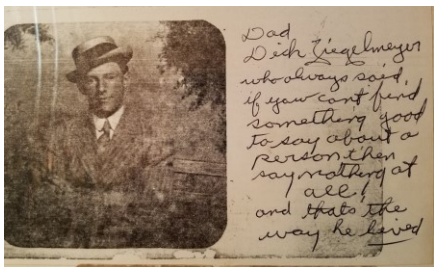 Dad
Dick Ziegelmeyer
who always said,
if you cant find
something good
to say about a
person then
say nothing at
all!
and thats the
way he lived